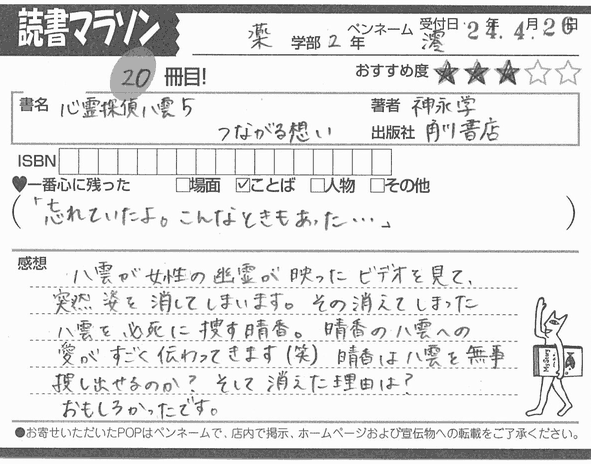 読書マラソン
薬 学部 2 年 ペンネーム 澪 受付日・24年.4月.26日
20 冊目! おすすめ度 ★★★☆☆
書名 心霊探偵八雲5 著者 神永学
つながる想い 出版社 角川書店
ISBN
♥一番心に残った □場面 ☑ことば □人物 □その他
(「忘れていたよ。こんなときもあった…」)
感想
八雲が女性の幽霊が映ったビデオを見て、
突然姿を消してしまいます。その消えてしまった
八雲を必死に捜す晴香。晴香の八雲への
愛がすごく伝わってきます(笑) 晴香は八雲を無事
捜し出せるのか?そして消えた理由は?
おもしろかったです。
●お寄せいただいたPOPはペンネームで、店内で掲示、ホームページおよび宣伝物への転載をご了承ください。